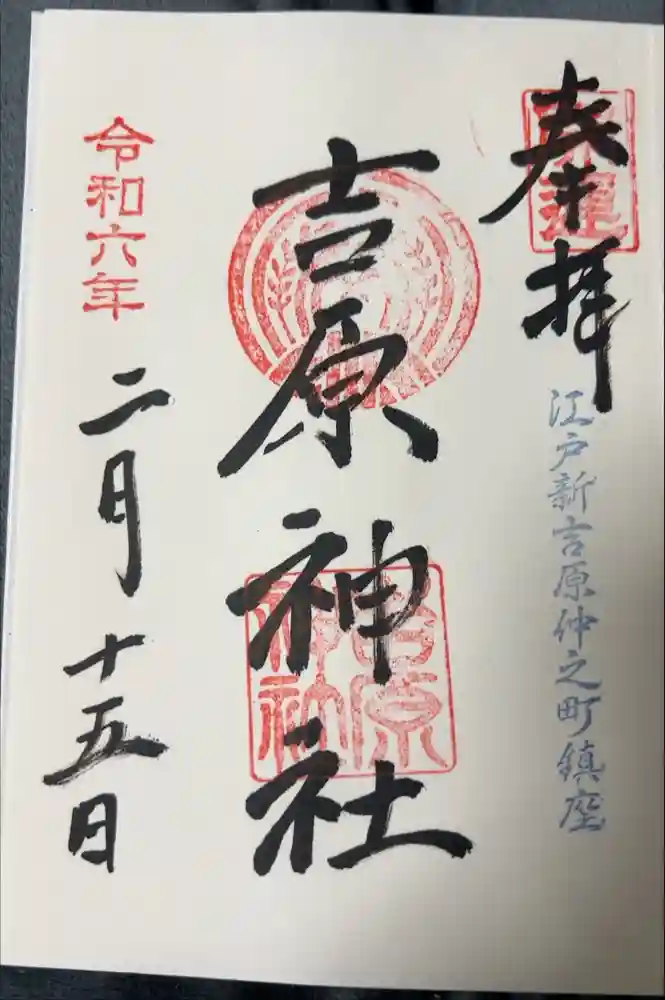 奉拝
江戸新吉原仲之町鎮座
吉原神社
吉原
神社
令和六年
二月十五日